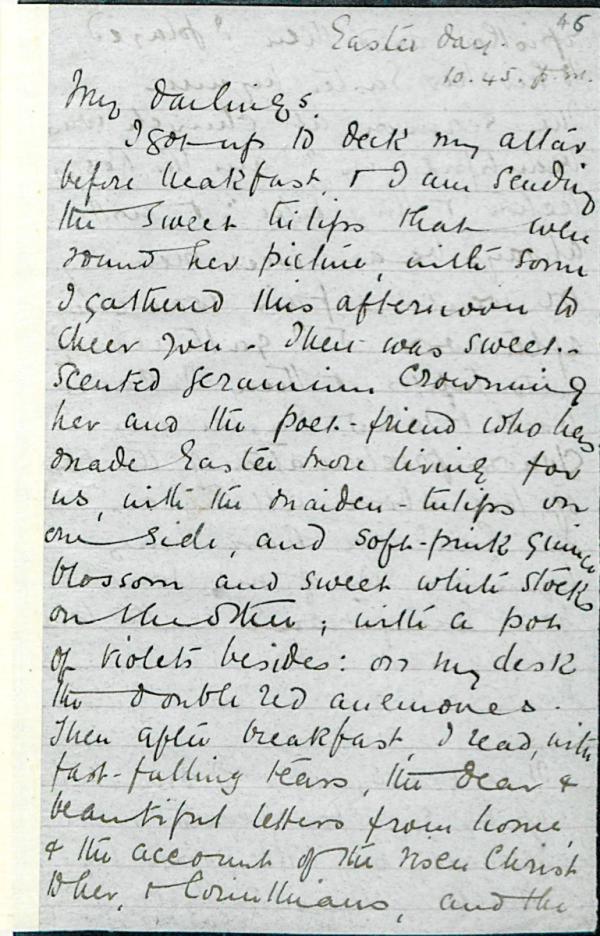 46
Easter day.
10.45. p.m.
My darlings,
I got up to deck my altar
before breakfast, & I am sending
the sweet tulips that were
round her picture, with some
I gathered this afternoon to
cheer you. There was sweet-
scented geranium crowning
her and the poet-friend who has
made Easter more living for
us, with the maiden-tulips on
one side, and soft-pink quince
blossom and sweet white stocks
on the other; with a pot
of violets besides: on my desk
the double red anemones.
Then after breakfast, I read, with
fast-falling tears, the dear &
beautiful letters from home,
& the account of the risen Christ
to her, & Corinthians, and the